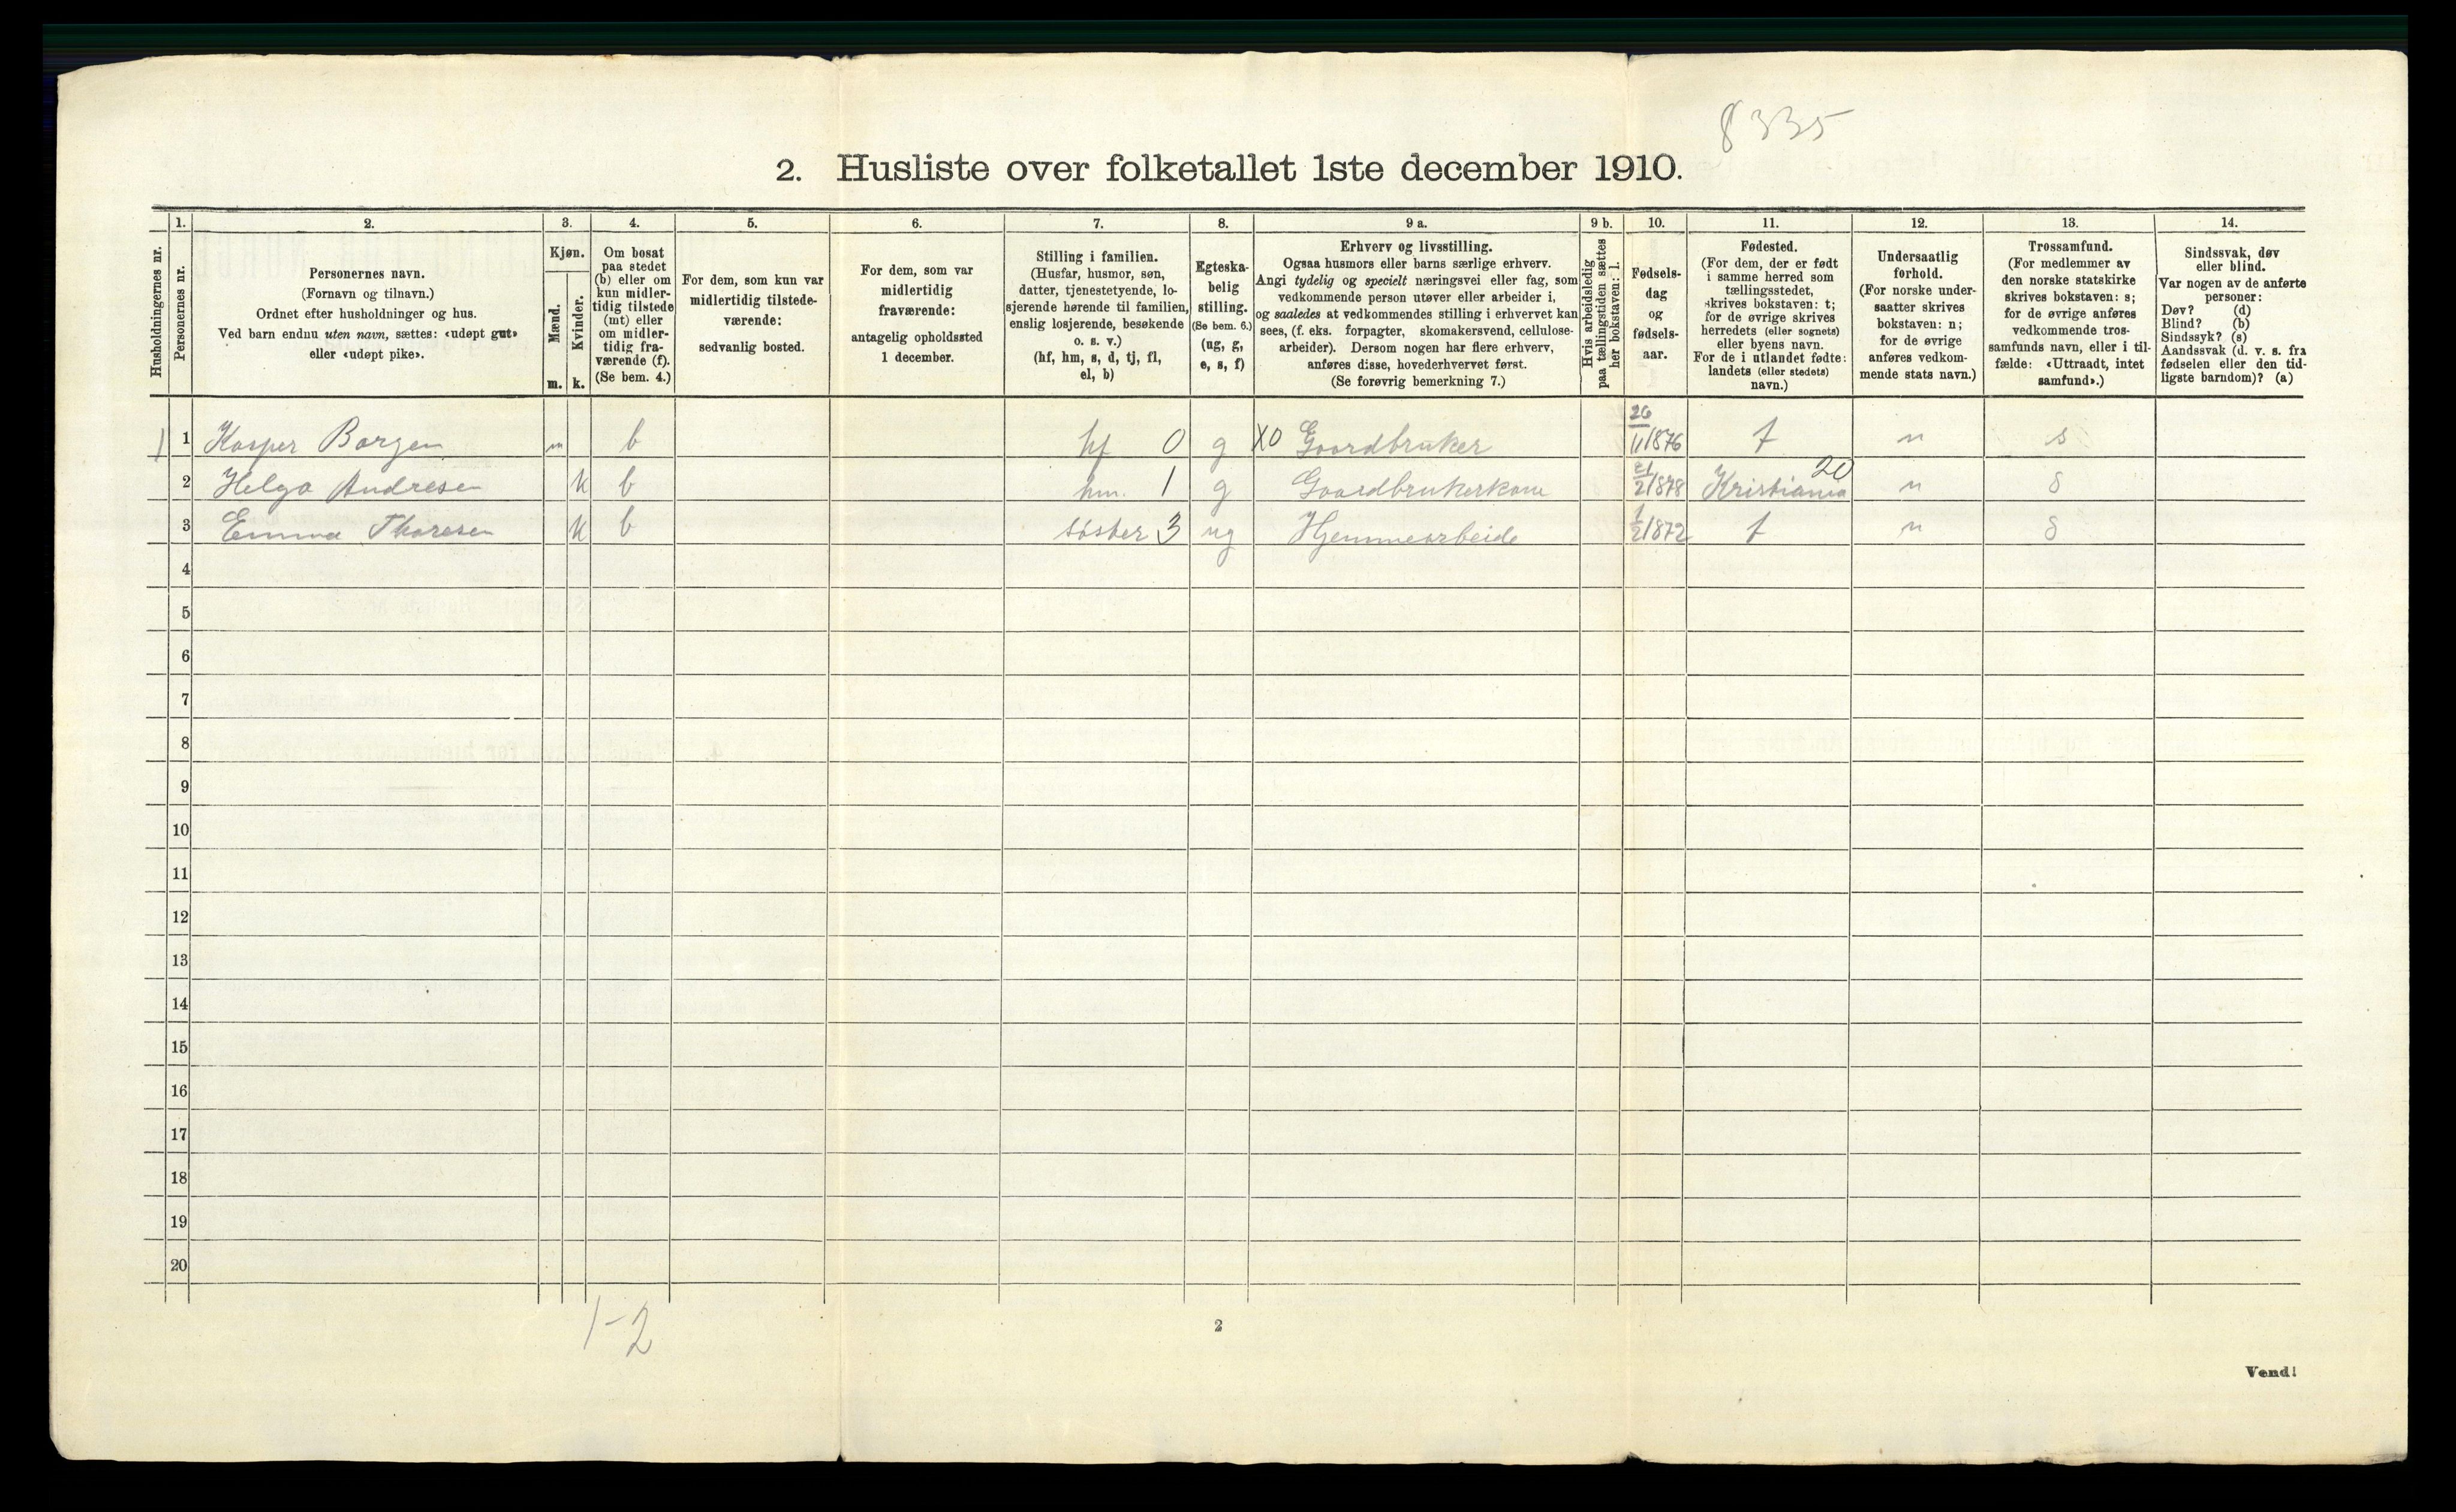 8335
2. Husliste over folketallet 1ste december 1910.
Husholdningernes nr.
1.
Personernes nr.
2.
Personernes navn.
(Fornavn og tilnavn.)
Ordnet efter husholdninger og hus.
Ved barn endnu uten navn, sættes: «udøpt gut»
eller «udøpt pike».
3.
Kjøn.
Mænd.
m.
Kvinder.
k.
4.
Om bosat
paa stedet
(b) eller om
kun midler-
tidig tilstede
(mt) eller
om midler-
tidig fra-
værende (f).
(Se bem. 4.)
5.
For dem, som kun var
midlertidig tilstede-
værende:
sedvanlig bosted.
6.
For dem, som var
midlertidig
fraværende:
antagelig opholdssted
1 december.
7.
Stilling i familien.
(Husfar, husmor, søn,
datter, tjenestetyende, lo-
sjerende hørende til familien,
enslig losjerende, besøkende
o. s. v.)
(hf, hm, s, d, tj, fl,
el, b)
8.
Egteska-
belig
stilling.
(Se bem. 6.)
(ug, g,
e, s, f)
9 a.
Erhverv og livsstilling.
Ogsaa husmors eller barns særlige erhverv.
Angi tydelig og specielt næringsvei eller fag, som
vedkommende person utøver eller arbeider i,
og saaledes at vedkommendes stilling i erhvervet kan
sees, (f. eks. forpagter, skomakersvend, cellulose-
arbeider). Dersom nogen har flere erhverv,
anføres disse, hovederhvervet først.
(Se forøvrig bemerkning 7.)
9 b.
Hvis arbeidsledig
paa tællingstiden sættes
her bokstaven: l.
10.
Fødsels-
dag
og
fødsels-
aar.
11.
Fødested.
(For dem, der er født
i samme herred som
tællingsstedet,
skrives bokstaven: t;
for de øvrige skrives
herredets (eller sognets)
eller byens navn.
For de i utlandet fødte:
landets (eller stedets)
navn.)
12.
Undersaatlig
forhold.
(For norske under-
saatter skrives
bokstaven: n;
for de øvrige
anføres vedkom-
mende stats navn.)
13.
Trossamfund.
(For medlemmer av
den norske statskirke
skrives bokstaven: s;
for de øvrige anføres
vedkommende tros-
samfunds navn, eller i til-
fælde: «Uttraadt, intet
samfund».)
14.
Sindssvak, døv
eller blind.
Var nogen av de anførte
personer:
Døv? (d)
Blind? (b)
Sindssyk? (s)
Aandssvak (d. v. s. fra
fødselen eller den tid-
ligste barndom)? (a)
1 1 Kasper Borgen m b hf 0 g X0 Gaardbruker 26/11 1876 t n s
2 Helga Andresen k b hm. 1 g Gaardbrukerkone 21/2 1878 Kristiania 20 n s
3 Emma Thoresen k b søster 3 ug Hjemmearbeide 1/2 1872 t n s
4
5
6
7
8
9
10
11
12
13
14
15
16
17
18
19
20
1-2
2
Vend!